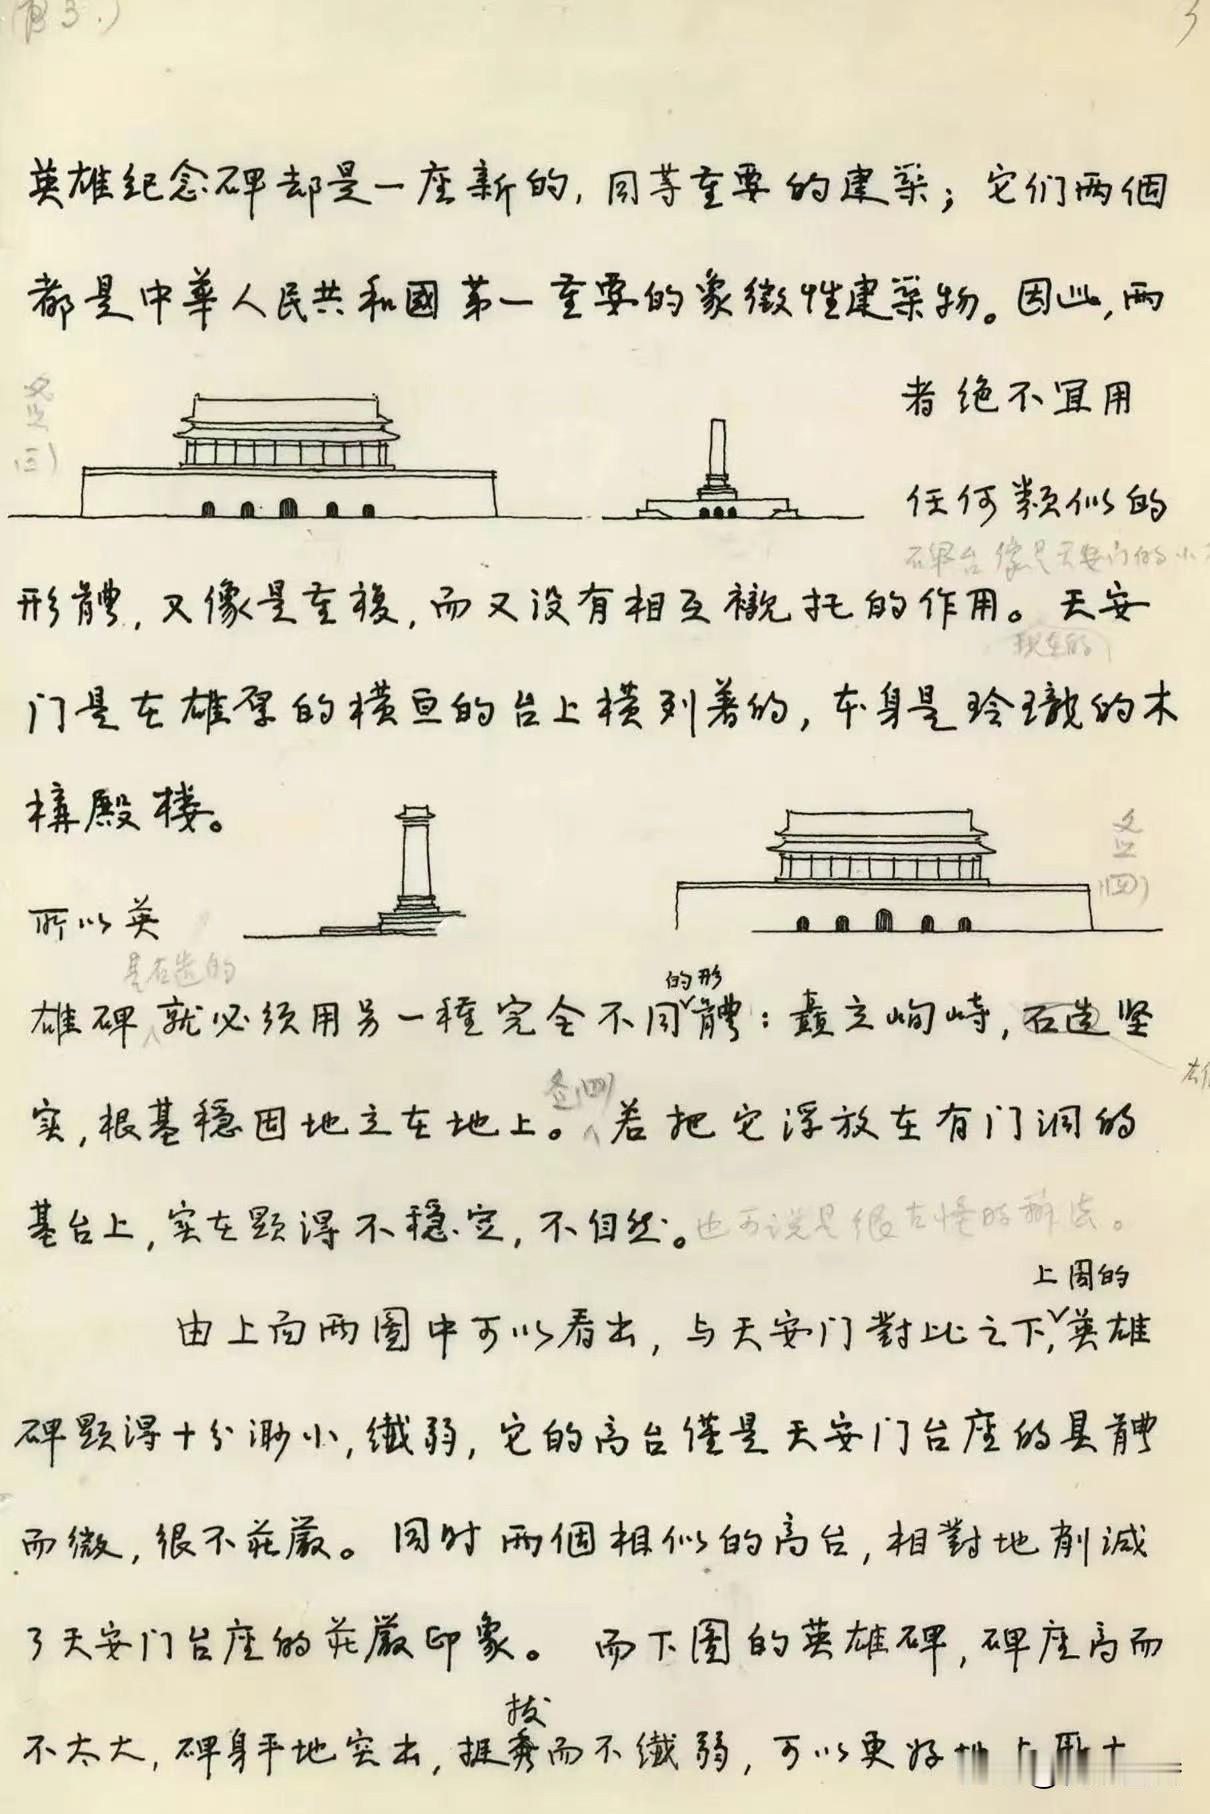 英雄纪念碑却是一座新的，同等重要的建筑；它们两個
都是中華人民共和國第一重要的象徵性建築物。因此，两
者绝不宜用
任何類似的
碑台像是天安门的小
形體，又像是重複，而又没有相互襯托的作用。天安
现在的
门是在雄厚的横亘的台上横列着的，本身是玲瓏的木
構殿楼。
所以英
是石造的
的形
雄碑就必须用另一種完全不同體：矗立峋峙，石造坚
实，根基穩固地立在地上。若把它浮放在有门洞的
基台上，实在顯得不穩定，不自然。也可说是很古怪的辦法。
上图的
由上面两圖中可以看出，与天安门對比之下，英雄
碑顯得十分渺小，纖弱，它的高台僅是天安门台座的具體
而微，很不莊嚴。同时两個相似的高台，相對地削減
了天安门台座的莊嚴印象。而下圖的英雄碑，碑座高而
拔
不太大，碑身平地突出，挺而不纖弱，可以更好地